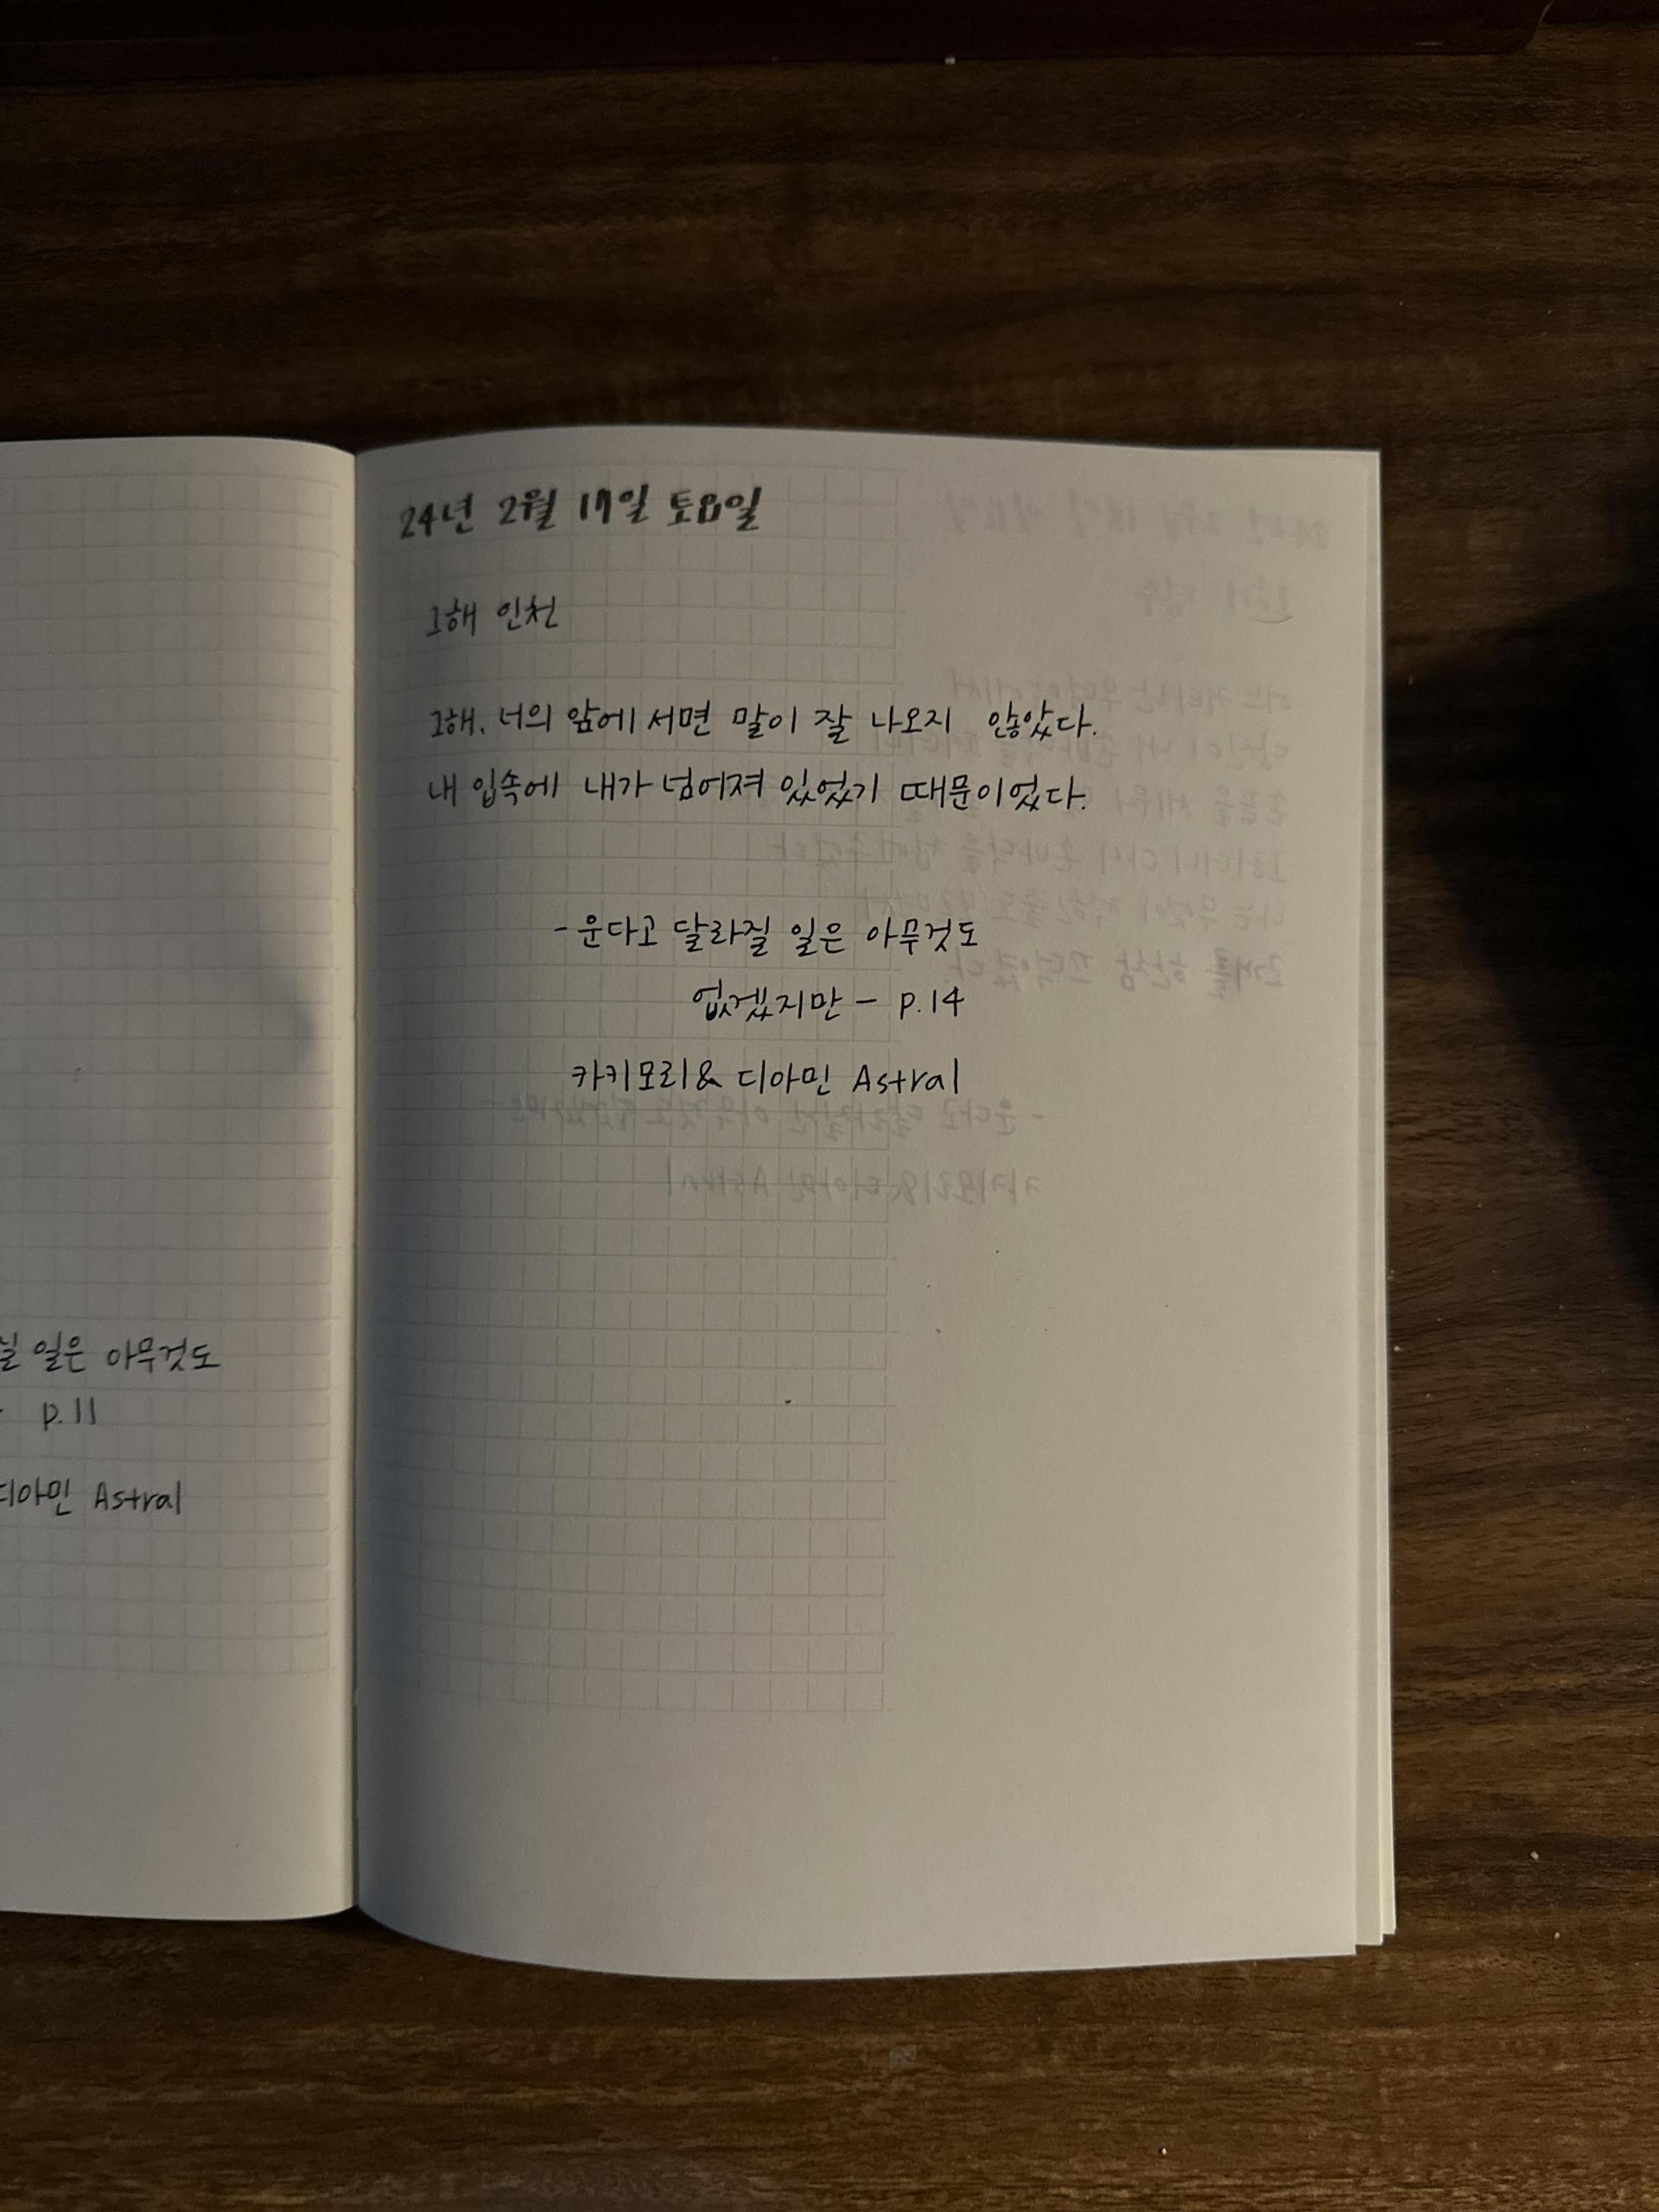 24년 2월 17일 토요일
그해 인천
그해, 너의 앞에 서면 말이 잘 나오지 않았다.
내 입속에 내가 넘어져 있었기 때문이었다.
-운다고 달라질 일은 아무것도
없겠지만- p.14
카키모리& 디아민 Astral
일은 아무것도
p.11
디아민 Astral